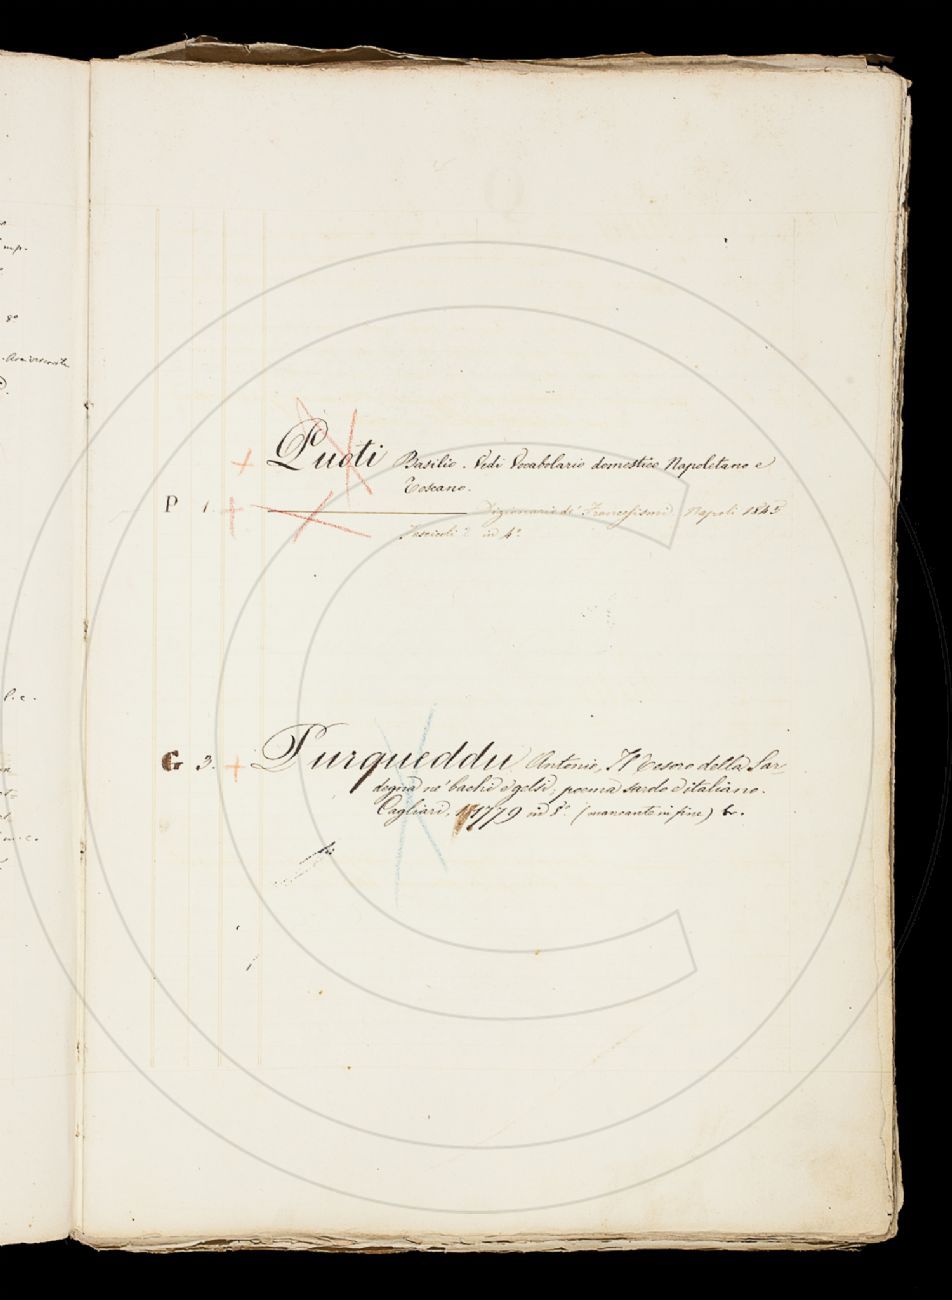 Puoti Basilio. Vedi Vocabolario domestico Napoletano e
Toscano.
P 1. + Dizionario de' Francesismi Napoli 1845
Fascicoli 2 in 4°
G 3. + Purqueddu Antonio, Il Tesoro della Sar-
degna ne' bachi e gelsi, poema sardo e italiano.
Cagliari, 1779 in 8° (mancante in fine)